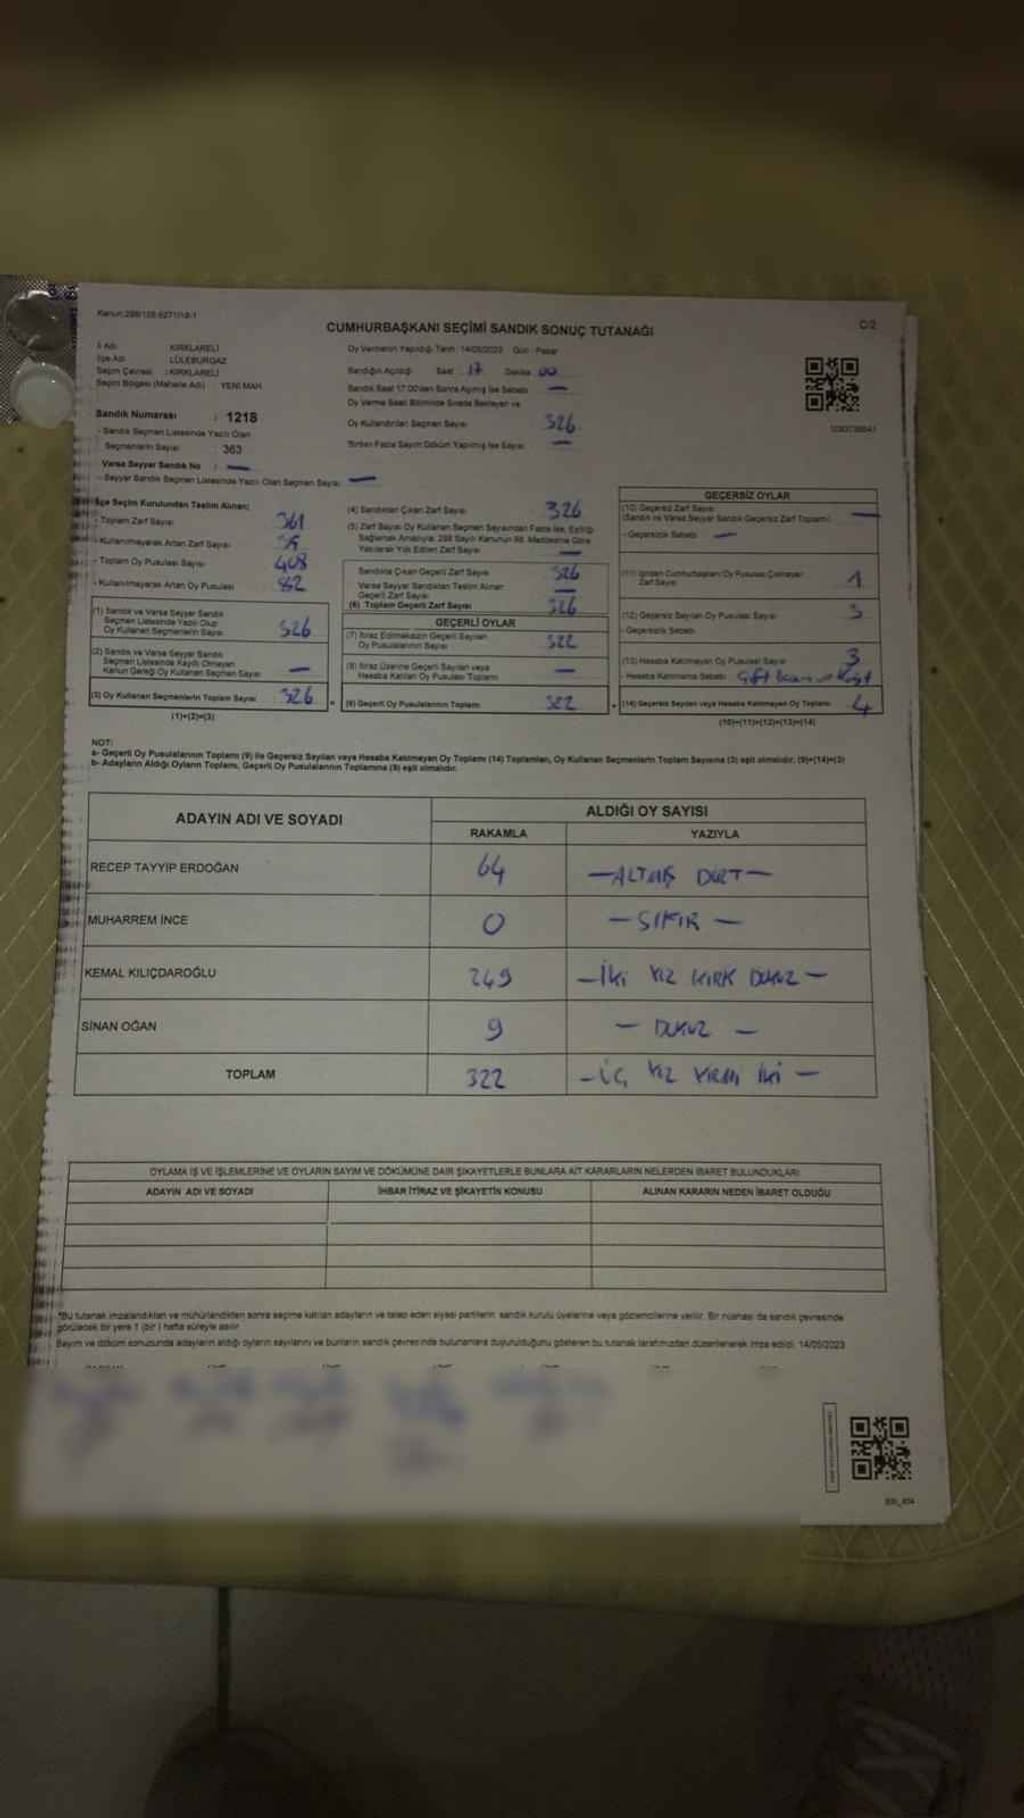 CUMHURBAŞKANI SEÇİMİ SANDIK SONUÇ TUTANAĞI
C/2
İl Adı : KIRKLARELİ
İlçe Adı : LÜLEBURGAZ
Seçim Çevresi : KIRKLARELİ
Seçim Bölgesi (Mahalle Adı) : YENİ MAH
Oy Vermenin Yapıldığı Tarih : 14/05/2023 Gün : Pazar
Sandığın Açıldığı Saat 17 Dakika 00
Sandık Saat 17.00'den Sonra Açılmış İse Sebebi —
Oy Verme Saati Bitiminde Sırada Bekleyen ve
Oy Kullandırılan Seçmen Sayısı 326
Birden Fazla Sayım Döküm Yapılmış İse Sayısı —
Sandık Numarası : 1218
- Sandık Seçmen Listesinde Yazılı Olan
Seçmenlerin Sayısı : 363
Varsa Seyyar Sandık No : —
- Seyyar Sandık Seçmen Listesinde Yazılı Olan Seçmen Sayısı —
İlçe Seçim Kurulundan Teslim Alınan;
- Toplam Zarf Sayısı 361
- Kullanılmayarak Artan Zarf Sayısı
- Toplam Oy Pusulası Sayısı 408
- Kullanılmayarak Artan Oy Pusulası 82
(1) Sandık ve Varsa Seyyar Sandık
Seçmen Listesinde Yazılı Olup
Oy Kullanan Seçmenlerin Sayısı 326
(2) Sandık ve Varsa Seyyar Sandık
Seçmen Listesinde Kayıtlı Olmayan
Kanun Gereği Oy Kullanan Seçmen Sayısı —
(3) Oy Kullanan Seçmenlerin Toplam Sayısı 326
(1)+(2)=(3)
(4) Sandıktan Çıkan Zarf Sayısı 326
(5) Zarf Sayısı Oy Kullanan Seçmen Sayısından Fazla İse, Eşitliği
Sağlamak Amacıyla, 298 Sayılı Kanunun 98. Maddesine Göre
Yakılarak Yok Edilen Zarf Sayısı —
Sandıkta Çıkan Geçerli Zarf Sayısı 326
Varsa Seyyar Sandıktan Teslim Alınan
Geçerli Zarf Sayısı —
(6) Toplam Geçerli Zarf Sayısı 326
GEÇERLİ OYLAR
(7) İtiraz Edilmeksizin Geçerli Sayılan
Oy Pusulalarının Sayısı 322
(8) İtiraz Üzerine Geçerli Sayılan veya
Hesaba Katılan Oy Pusulası Toplamı —
(9) Geçerli Oy Pusulalarının Toplamı 322
GEÇERSİZ OYLAR
(10) Geçersiz Zarf Sayısı
(Sandık ve Varsa Seyyar Sandık Geçersiz Zarf Toplamı) —
- Geçersizlik Sebebi —
(11) İçinden Cumhurbaşkanı Oy Pusulası Çıkmayan
Zarf Sayısı 1
(12) Geçersiz Sayılan Oy Pusulası Sayısı 3
- Geçersizlik Sebebi
(13) Hesaba Katılmayan Oy Pusulası Sayısı 3
- Hesaba Katılmama Sebebi
(14) Geçersiz Sayılan veya Hesaba Katılmayan Oy Toplamı 4
(10)+(11)+(12)+(13)=(14)
NOT:
a- Geçerli Oy Pusulalarının Toplamı (9) ile Geçersiz Sayılan veya Hesaba Katılmayan Oy Toplamı (14) Toplamları, Oy Kullanan Seçmenlerin Toplam Sayısına (3) eşit olmalıdır. (9)+(14)=(3)
b- Adayların Aldığı Oyların Toplamı, Geçerli Oy Pusulalarının Toplamına (9) eşit olmalıdır.
ADAYIN ADI VE SOYADI
ALDIĞI OY SAYISI
RAKAMLA YAZIYLA
RECEP TAYYİP ERDOĞAN 64 — ALTMIŞ DÖRT —
MUHARREM İNCE 0 — SIFIR —
KEMAL KILIÇDAROĞLU 249 — İKİ YÜZ KIRK DOKUZ —
SİNAN OĞAN 9 — DOKUZ —
TOPLAM 322 — ÜÇ YÜZ YİRMİ İKİ —
OYLAMA İŞ VE İŞLEMLERİNE VE OYLARIN SAYIM VE DÖKÜMÜNE DAİR ŞİKAYETLERLE BUNLARA AİT KARARLARIN NELERDEN İBARET BULUNDUKLARI
ADAYIN ADI VE SOYADI İHBAR İTİRAZ VE ŞİKAYETİN KONUSU ALINAN KARARIN NEDEN İBARET OLDUĞU
*Bu tutanak imzalandıktan ve mühürlendikten sonra seçime katılan adayların ve talep eden siyasi partilerin sandık kurulu üyelerine veya gözlemcilerine verilir. Bir nüshası da sandık çevresinde
görülecek bir yere 1 (bir) hafta süreyle asılır.
Sayım ve döküm sonucunda adayların aldığı oyların sayılarını ve bunların sandık çevresinde bulunanlara duyurulduğunu gösteren bu tutanak tarafımızdan düzenlenerek imza edildi. 14/05/2023